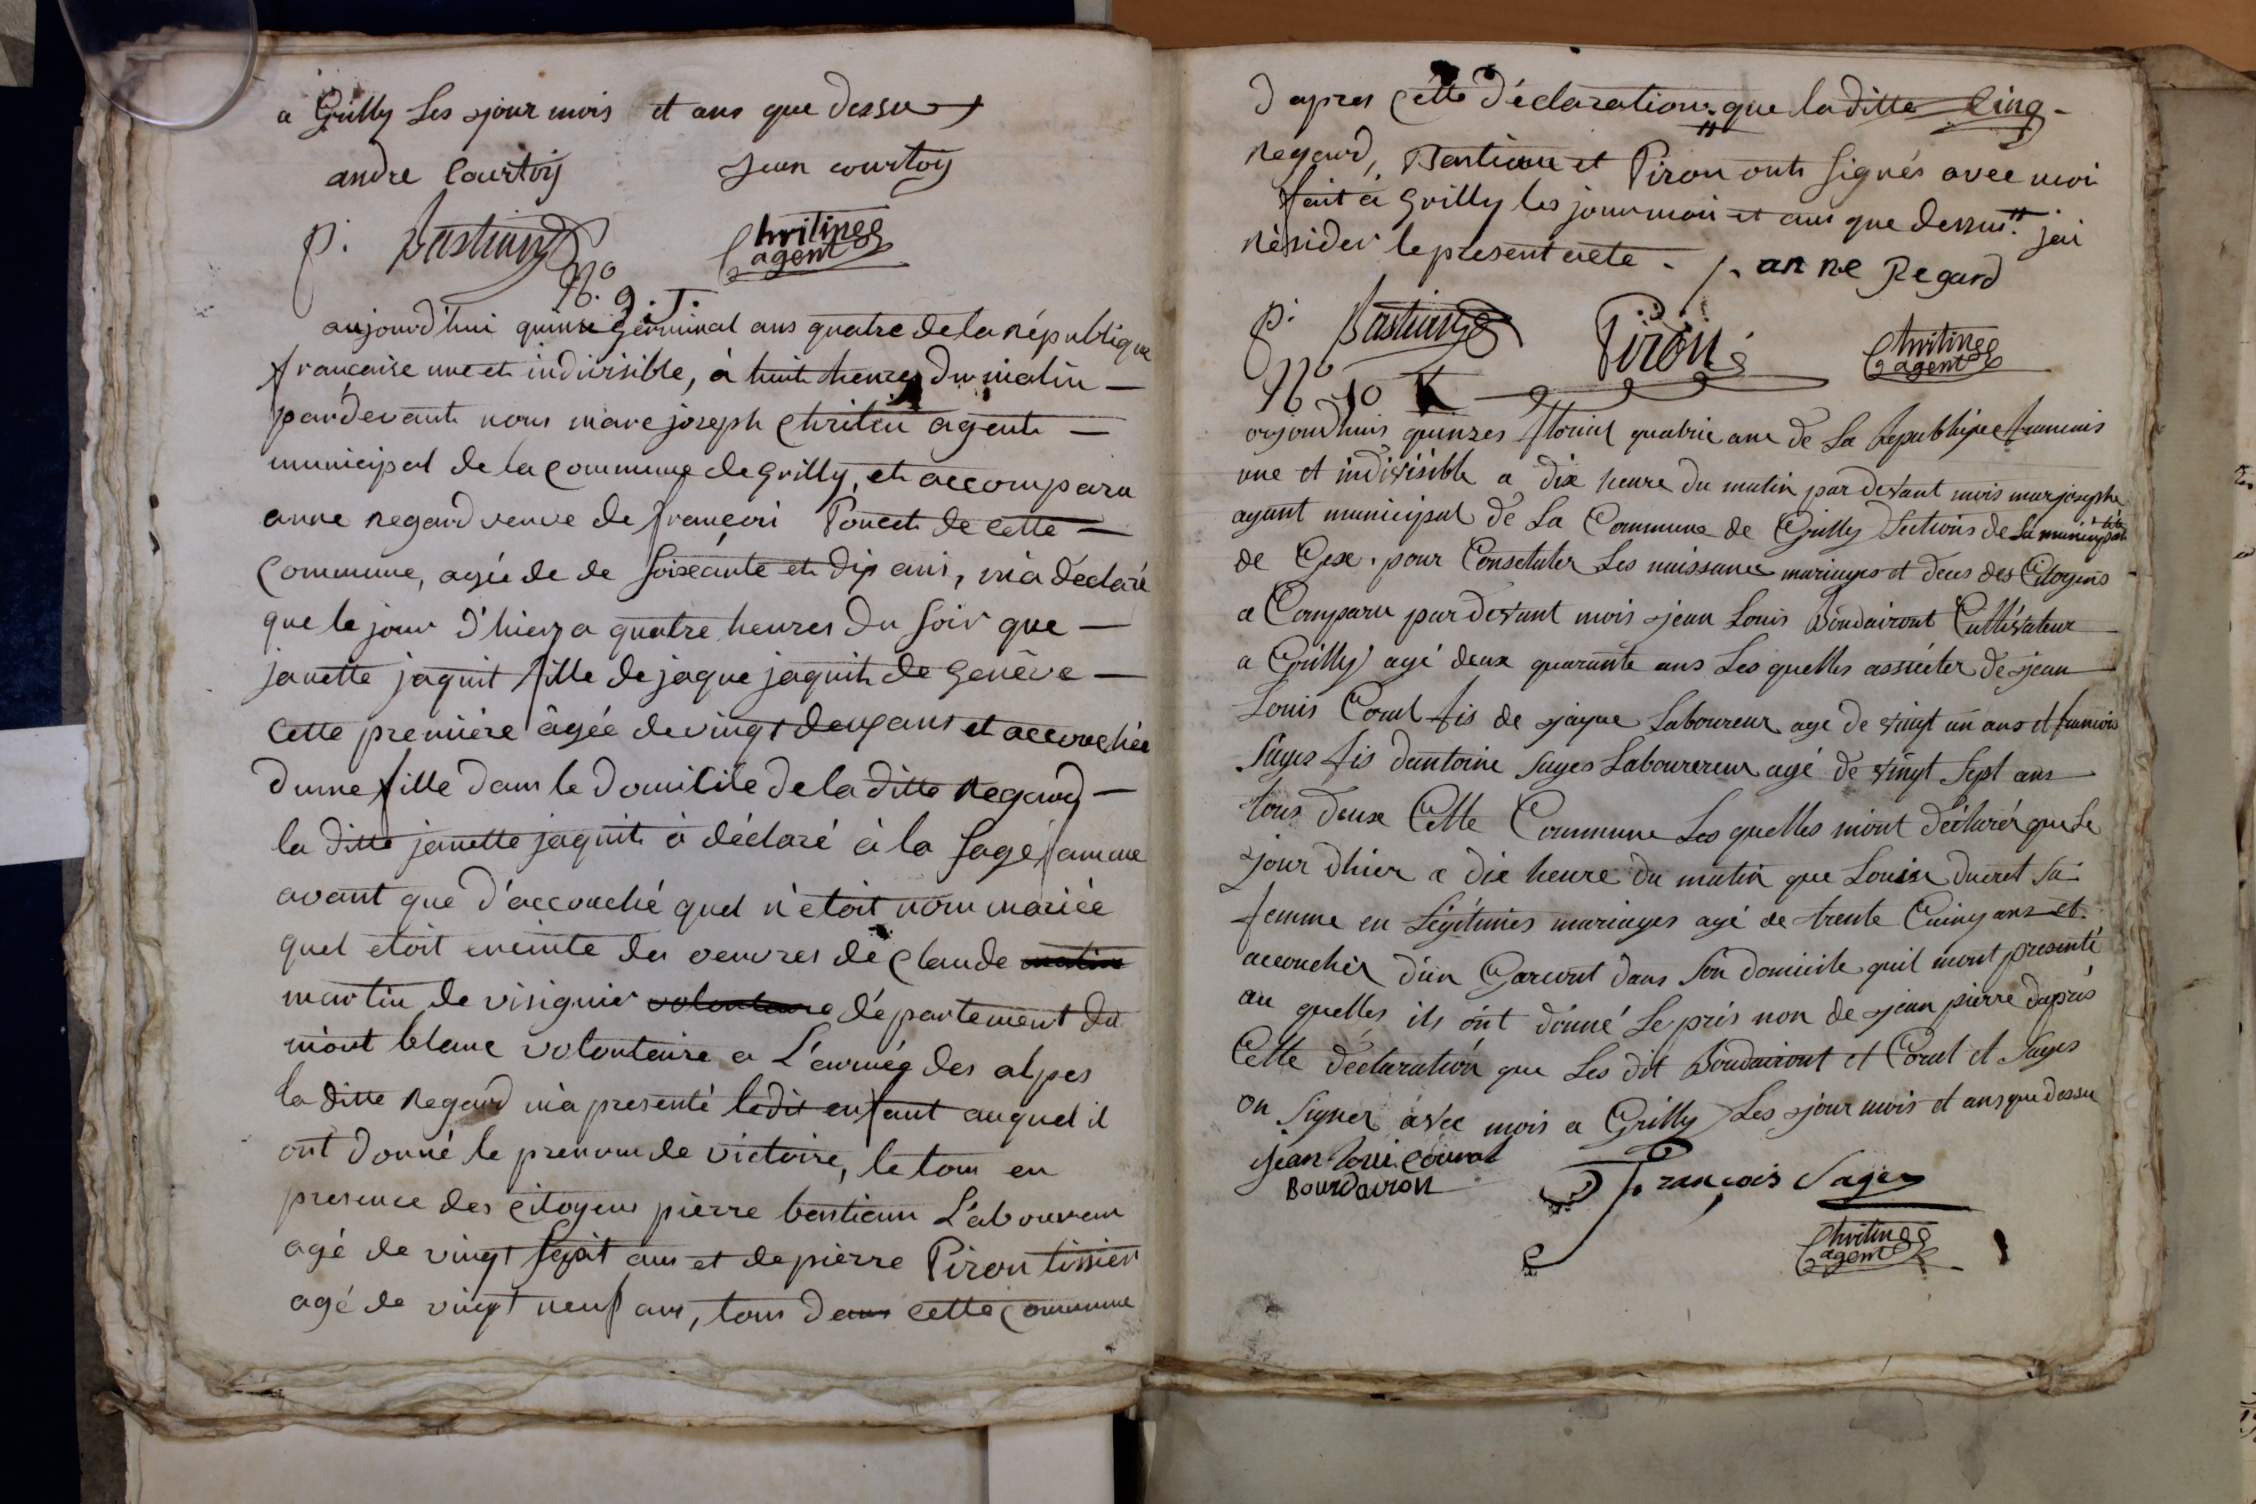 a Grilly Les jour mois et ans que dessu
andre Courtois Jean courtoy
p. Bastian Chritinee agent
N.º 9. J.
aujourd'hui quinse Germinal ans quatre de la république
francaise une et indivisible, à huit heures du matin
pardevant nous marc joseph Chritin agent
municipal de la commune de Grilly, et accompara
anne Regard veuve de françoi Poncet de cette
Commune, agée de de soixante et dix ans, m'a déclaré
que le jour d'hier a quatre heures du soir que
janette jaquit fille de jaque jaquit de Genève
cette première âgée de vingt deux ans et accouchée
dune fille dans le domicile de la ditte Regard
la ditte janette jaquit a déclaré à la sage famme
avant que d'accouché quel n'etoit nom mariée
quel etoit eneinte des oeuvres de Claude matin
martin de visignier volontaire département du
mont blanc volontaire a L'armée des alpes
la ditte Regard m'a presenté ledit enfant auquel il
ont donné le prenom de victoire, le tout en
presence des citoyens pierre bastian L'aboureur
agé de vingt sept ans et de pierre Piron tissier
agé de vingt neuf ans, tous deux cette commune
d'apres cette déclaration que la ditte Cinq
Regard, Bastian et Piron ont signés avec moi
fait à Grilly les jour mois et ans que dessus j'ai
résider le present acte anne Regard
p. Bastian Piron Chritinee agent
Nº 10 K
aujourdhuis quinzes floriel quatrie ane de La Republique francois
une et indivisible a dix heure du matin par devant mois marjosephe
agant municipal de La Commune de Grilly Sections de La municipalité
de Gex. pour Consetater Les naissances mariages et deces des Citoyens
a Comparu par devant mois jean Louis Bourdairont Cultivateur
a Grilly agé deux quarante ans Les quelles assiéter de jean
Louis Corul fis de jaque Laboureur age de vingt un ans et francois
Sages fis dantoine Sages Labourereur agé de vingt sept ans
tous deux Cette Commune Les quelles mont déclarér que Le
jour dhier a dix heure du matin que Louise Ducret sa
femme en Légitimes mariages agé de trente Cuinq ans et
accoucher d'un Garcont dans son domicile quil mont presenté
au quelles ils ont donné Le pris non de jean pierre dapres
Cette déclaration que Les dit Bourdairont et Corul et Sages
on Signer avec mois a Grilly Les jour mois et ans que dessu
jean Loui courat
Bourdairon françois Sages
Chritinee agent